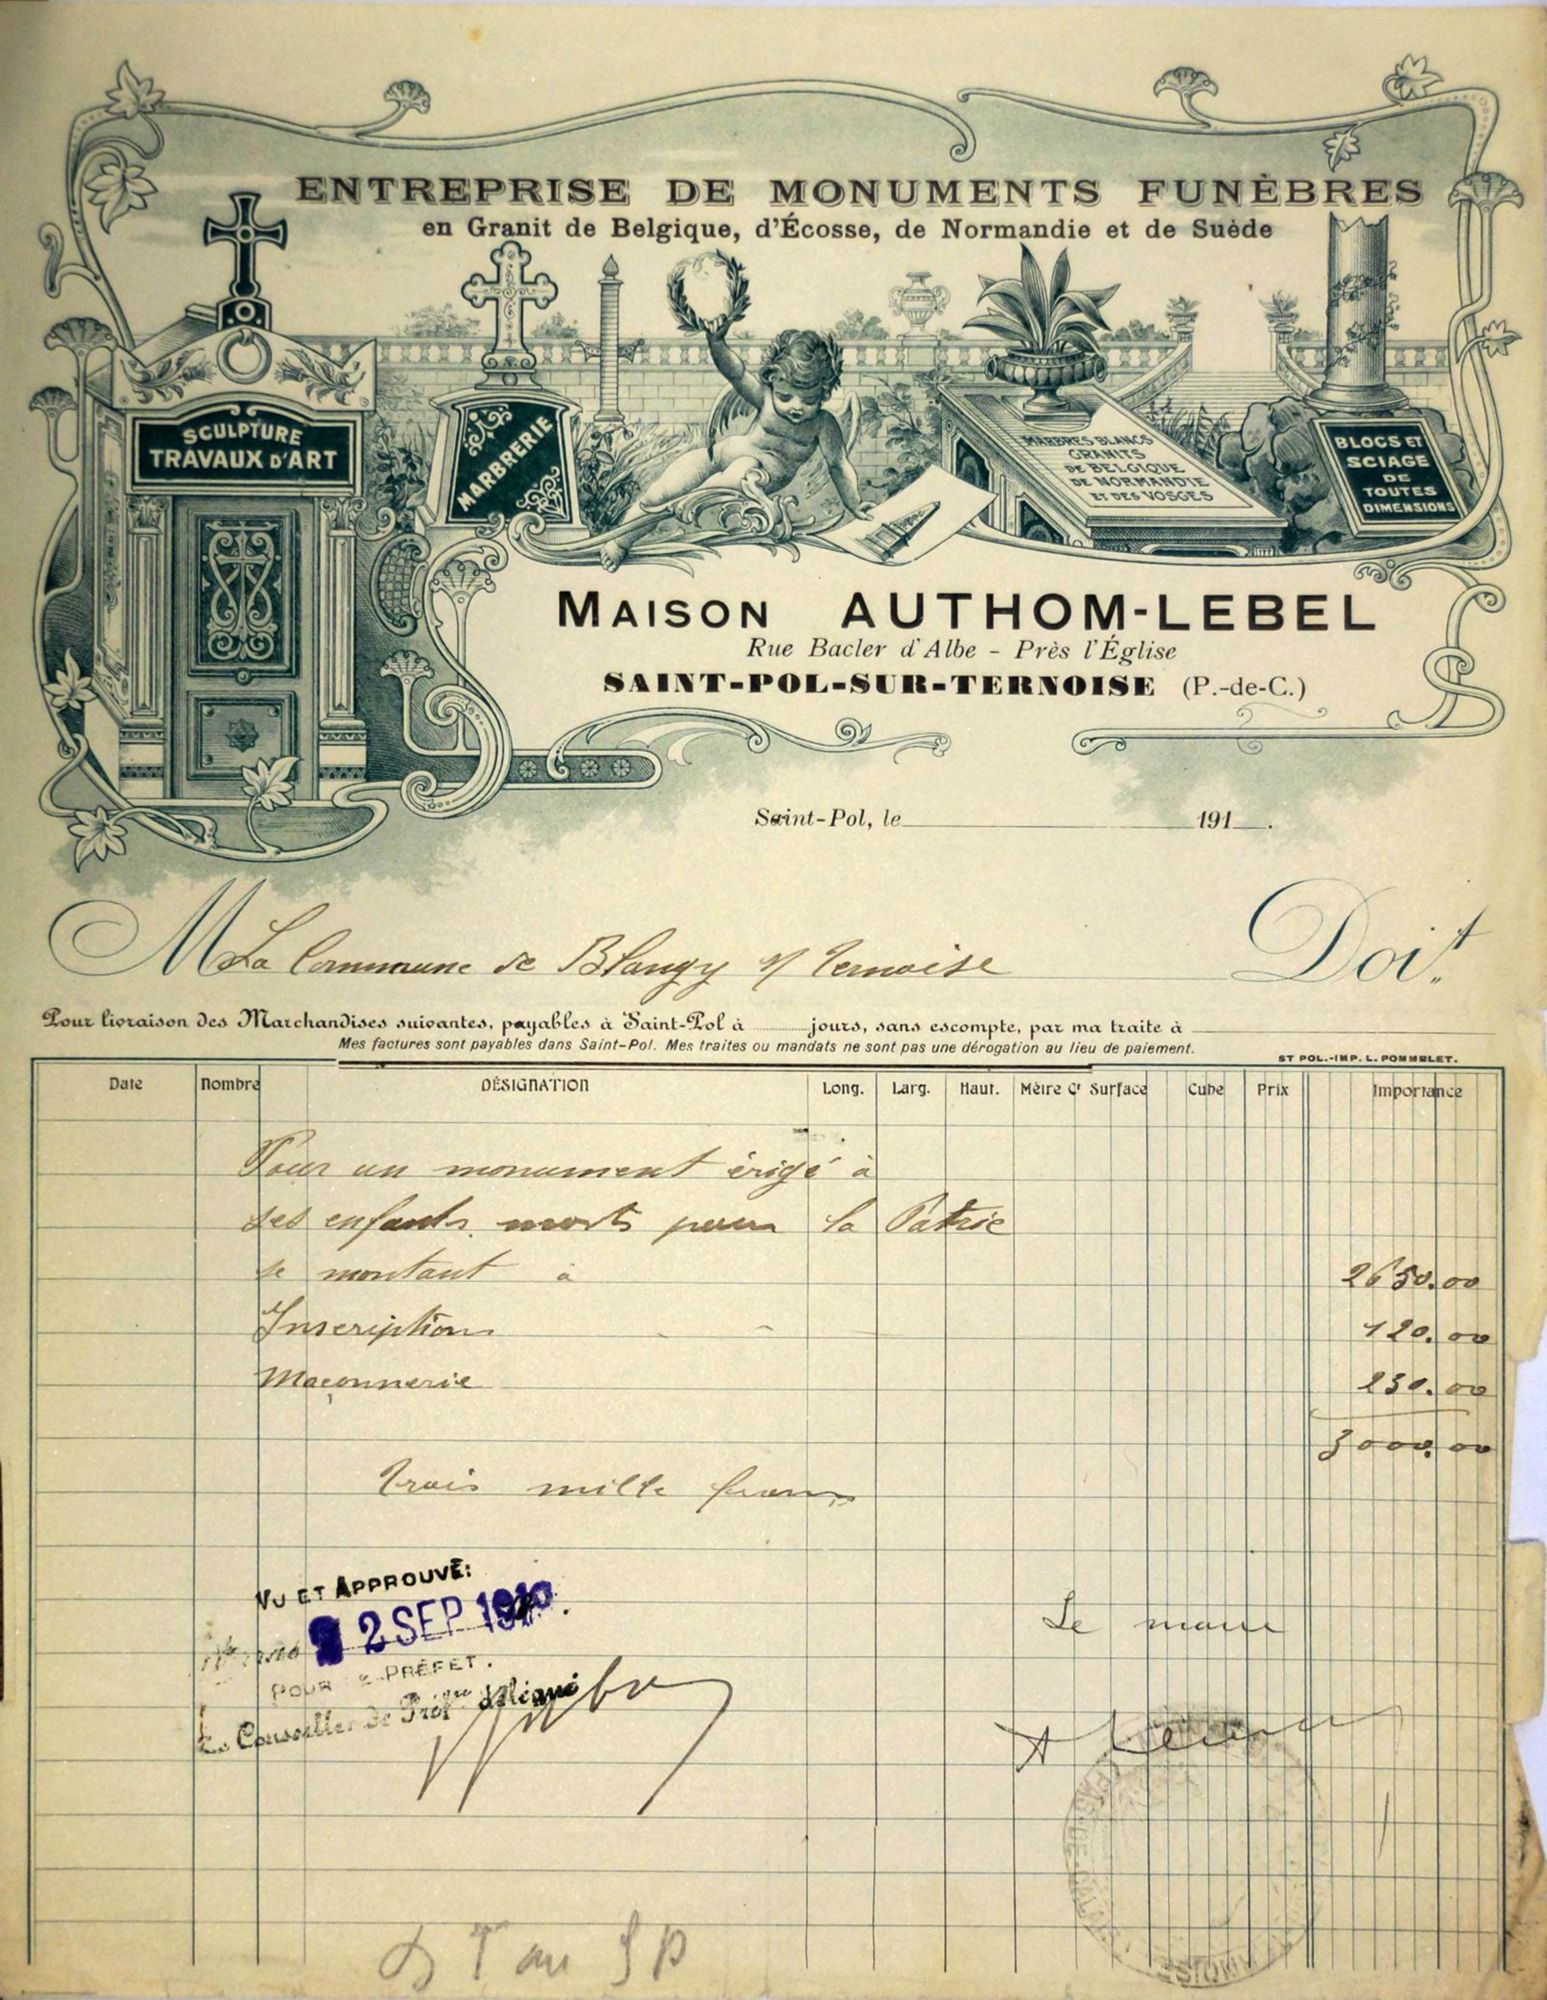 ENTREPRISE DE MONUMENTS FUNÈBRES
en Granit de Belgique, d'Écosse, de Normandie et de Suède
SCULPTURE
TRAVAUX D'ART
MARBRERIE
MARBRES BLANCS
GRANITS
DE BELGIQUE
DE NORMANDIE
ET DES VOSGES
BLOCS ET
SCIAGE
DE
TOUTES
DIMENSIONS
MAISON AUTHOM-LEBEL
Rue Bacler d'Albe - Près l'Église
SAINT-POL-SUR-TERNOISE (P.-de-C.)
Saint-Pol, le 191 .
M La Commune de Blangy s/ Ternoise Doit
Pour livraison des Marchandises suivantes, payables à Saint-Pol à jours, sans escompte, par ma traite à
Mes factures sont payables dans Saint-Pol. Mes traites ou mandats ne sont pas une dérogation au lieu de paiement.
ST POL.-IMP. L. POMMELET.
Date Nombre DÉSIGNATION Long. Larg. Haut. Mètre Ct Surface Cube Prix Importance
Pour un monument érigé à
ses enfants morts pour la Patrie
se montant à 2650.00
Inscriptions 120.00
Maçonnerie 230.00
3000.00
Trois mille francs
VU ET APPROUVÉ:
2 SEP
POUR LE PRÉFET.
Le Conseiller de Préfre délégué
Le maire
PAS-DE-CALAIS